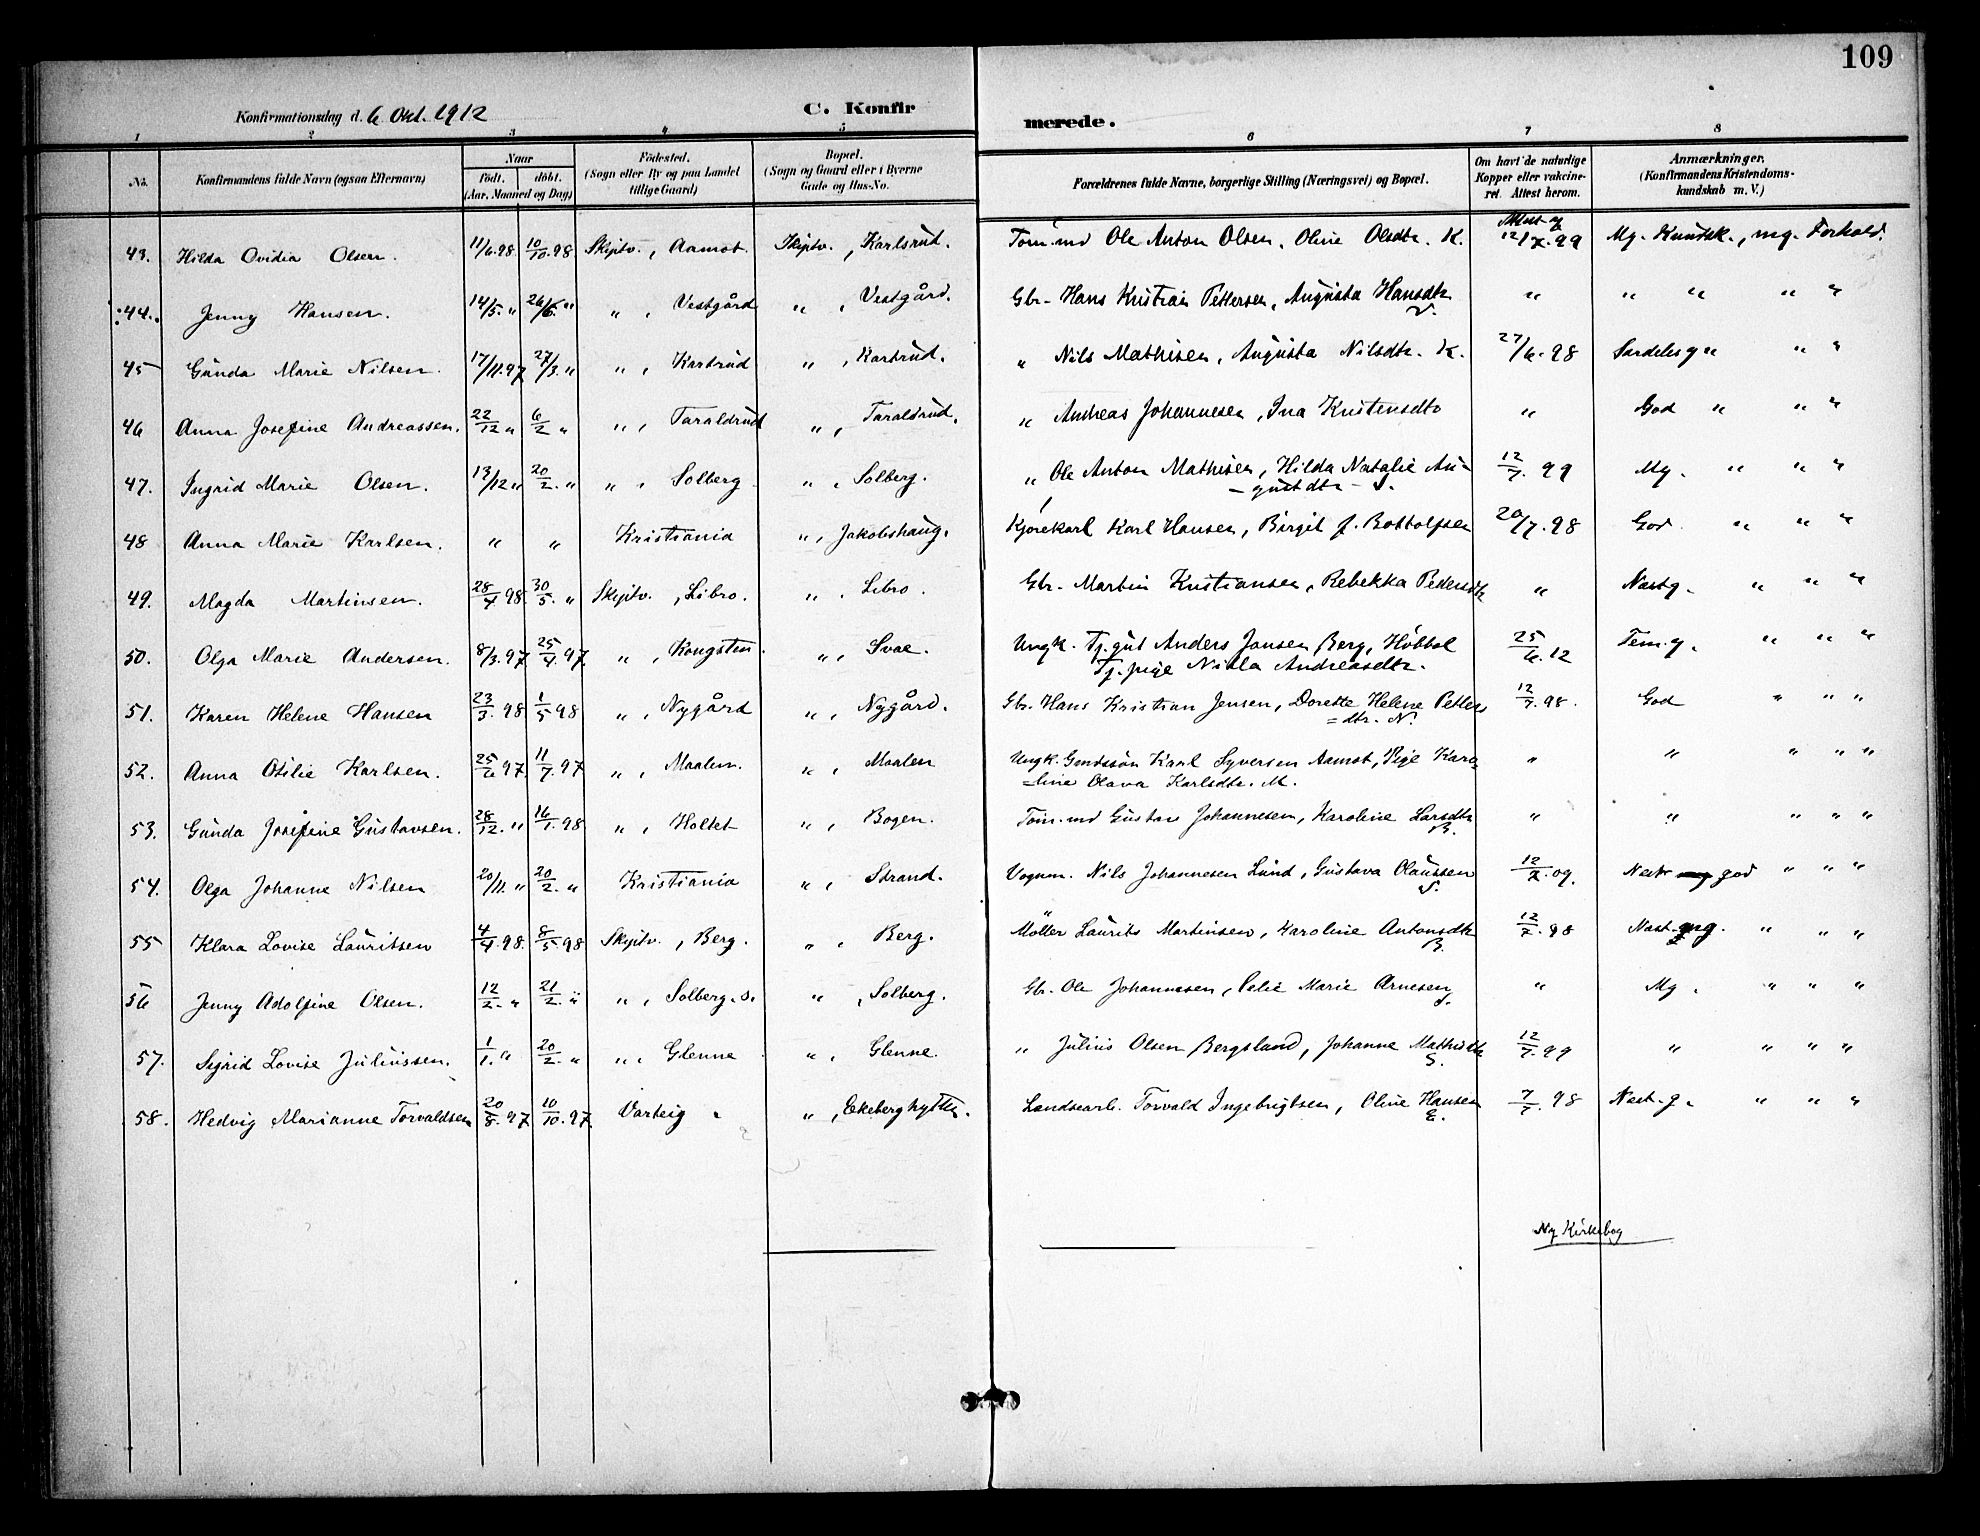 109
Konfirmationsdag d. 6 Okt. 1912 C. Konfirmerede.
1 2 3 4 5 6 7 8
No. Konfirmandens fulde Navn (ogsaa Efternavn) Naar födt. döbt. (Aar, Maaned og Dag) Födested. (Sogn eller By og paa Landet tillige Gaard) Bopæl. (Sogn og Gaard eller i Byerne Gade og Hus-No. Forældrenes fulde Navne, borgerlige Stilling (Næringsvei) og Bopæl. Om havt de naturlige Kopper eller vakcineret. Attest herom. Anmærkninger. (Konfirmandens Kristendomskundskab m. V.)
43. Hilda Ovidia Olsen. 11/6.98 10/10.98 Skiptv., Aamot. Skiptv., Karlsrud. Töm.md Ole Anton Olsen, Oline Olsdtr. K. Attest af 12/7.99 Mg. Kundsk., mg. Forhold.
44. Jenny Hansen. 14/5. " 26/6. " " , Vestgård " , Vestgård. Gbr. Hans Kristian Pettersen, Augusta Hansdtr V. " " " " "
45 Gunda Marie Nilsen. 17/11.97 27/3. " " , Karlsrud " , Karlsrud. " Nils Mathisen, Augusta Nilsdtr. K. 27/6.98 Særdeles g " " "
46 Anna Josefine Andreassen. 22/12 " 6/2 " " , Taraldrud " , Taraldrud. " Andreas Johannesen, Ina Kristensdtr " God " " "
47. Ingrid Marie Olsen. 13/12 " 20/2. " " , Solberg " , Solberg. " Ole Anton Mathisen, Hilda Natalie Au-
gustdtr - S. 12/7. 99 Mg. " " "
48 Anna Marie Karlsen. " " Kristiania " , Jakobshaug. Kjörekarl Karl Hansen, Birgit f. Bottolfsen 20/7.98 God. " " "
49. Magda Martinsen. 28/4 98. 30/5. " Skiptv., Libro. " , Libro. Gbr. Martin Kristiansen, Rebekka Pedersdtr " Næst g. " " "
50. Olga Marie Andersen. 8/3.97 25/4.97. " , Kongsten. " , Svae. Ungk. Tj.gut Anders Jansen Berg, Hobböl
Tj.pige Nikla Andreasdtr. 25/6.12 Tem.g. " " "
51. Karen Helene Hansen 23/3.98 1/5 98 " , Nygård " , Nygård. Gbr. Hans Kristian Jensen, Dorette Helene Petters
= dtr. N. 12/7.98. God " " "
52. Anna Otilie Karlsen. 25/6 97. 11/7.97 " , Maalen. " , Maalen Ungk. Gmdssön Karl Syversen Aamot, Pige Karo-
=line Olava Karlsdtr. M. " " " " "
53. Gunda Josefine Gustavsen. 28/12. " 16/1.98 " , Holtet " , Bogen. Töm.md Gustav Johannesen, Karoline Larsdtr B. " " " " "
54. Olga Johanne Nilsen 20/11 " 20/2. " Kristiania " , Strand. Vognm. Nils Johannesen Lund, Gustava Olaussen S. 12/7.09. Næst god " " "
55 Klara Lovise Lauritsen 4/4.98. 8/5 98 Skiptv., Berg. " , Berg. Möller Laurits Martinsen, Karoline Antonsdtr B. 12/7.98 Næst.mg. " " "
56 Jenny Adolfine Olsen. 12/2. " 21/2. " " , Solberg. s. " , Solberg. Gbr. Ole Johannesen, Pelie Marie Arnesen S. " Mg. " " "
57. Sigrid Lovise Juliussen. 1/1. " 20/2. " " , Glenne " , Glenne. " Julius Olsen Bergsland, Johanne Mathisdtr G. 12/7.99 " " " "
58. Hedvig Marianne Torvaldsen 20/8.97 10/10.97. Varteig " , Ekeberghytte. Landsearb. Torvald Ingebrigtsen, Oline Hansen E. 7/7.98 Næst.g. " " "
Ny Kirkebog